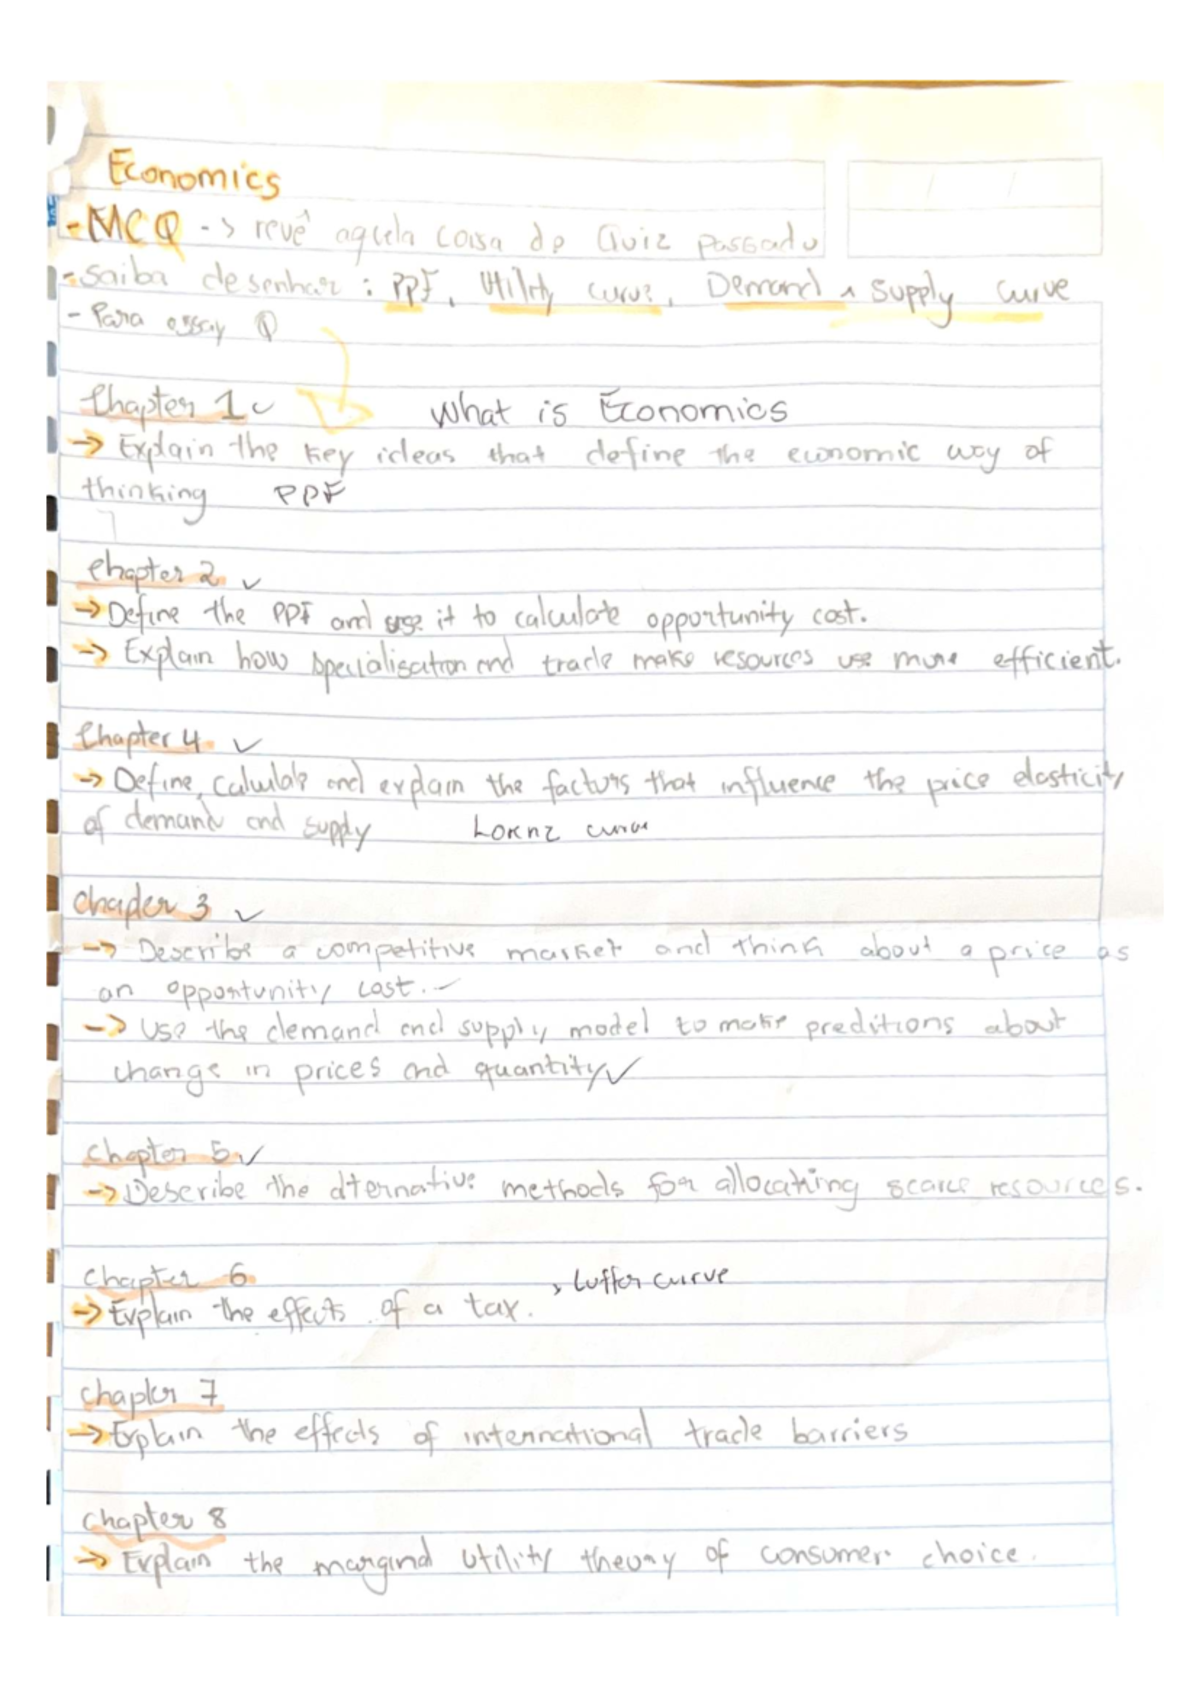 Economics
- MCQ -> revê aquela coisa do Quiz passado
- Saiba desenhar : PPF, Utility curve, Demand ^ supply curve
- Para essay Q
Chapter 1 ✓ What is Economics
-> Explain the key ideas that define the economic way of
thinking PPF
Chapter 2 ✓
-> Define the PPF and use it to calculate opportunity cost.
-> Explain how specialisation and trade make resources use more efficient.
Chapter 4 ✓
-> Define, calculate and explain the factors that influence the price elasticity
of demand and supply Lornz curve
Chapter 3 ✓
-> Describe a competitive market and think about a price as
an opportunity cost. ✓
-> Use the demand and supply model to make preditions about
change in prices and quantity ✓
Chapter 5 ✓
-> Describe the alternative methods for allocating scarce resources.
Chapter 6 , Luffer curve
-> Explain the effects of a tax.
Chapter 7
-> Explain the effects of international trade barriers
Chapter 8
-> Explain the marginal utility theory of consumer choice.